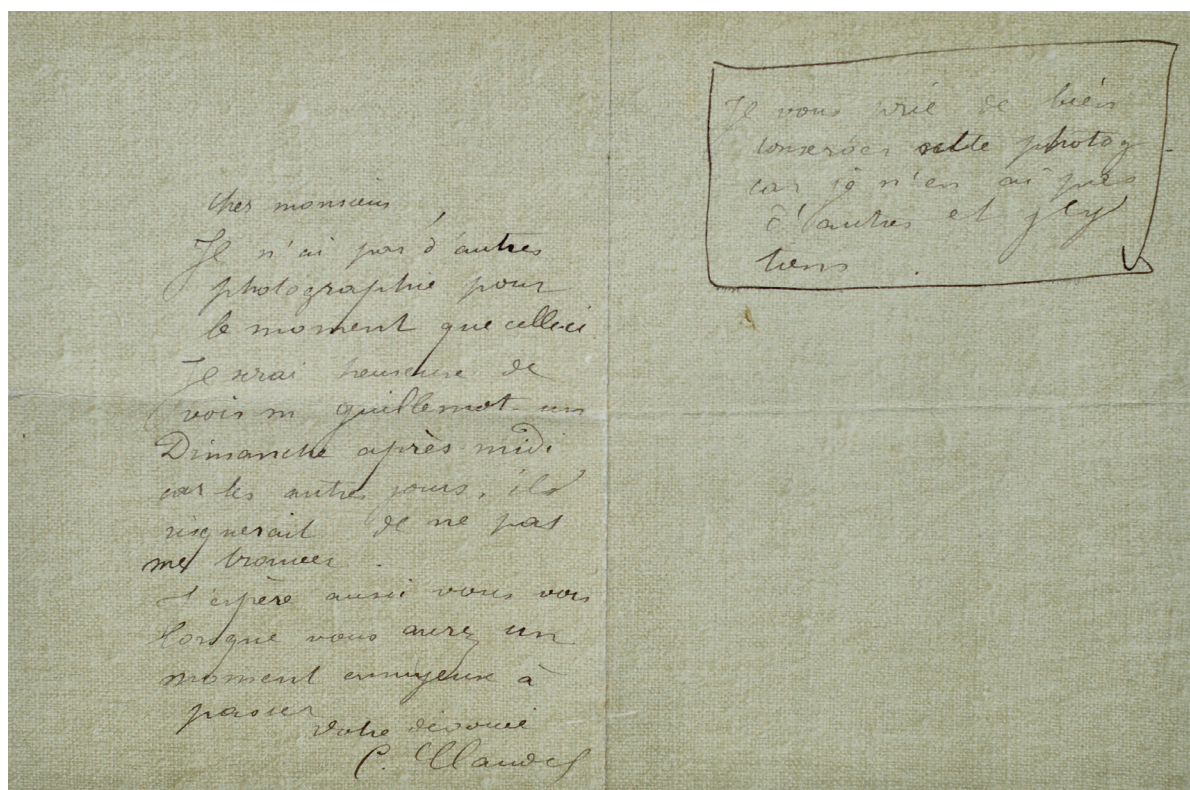 cher monsieur,
Je n'ai pas d'autres
photographie pour
le moment que celle-ci.
Je serai heureuse de
voir m guillemot un
Dimanche après midi
car les autres jours, il
risquerait de ne pas
me trouver.
J'espère aussi vous voir
lorsque vous aurez un
moment ennuyeux à
passer
votre dévouée
C. Claudel
Je vous prie de bien
conserver cette photog
car je n'en ai pas
d'autres et j'y
tiens.